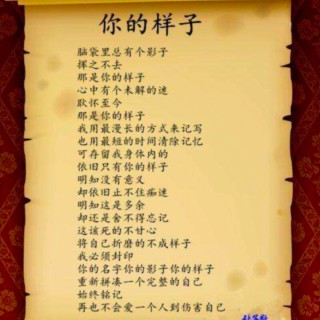 你的样子
脑袋里总有个影子
挥之不去
那是你的样子
心中有个未解的迷
耿怀至今
那是你的样子
我用最漫长的方式来记写
也用最短的时间清除记忆
可存留我身体内的
依旧只有你的样子
明知没有意义
却依旧止不住痴迷
明知这是多余
却还是舍不得忘记
这该死的不甘心
将自己折磨的不成样子
我必须封印
你的名字你的影子你的样子
重新拼凑一个完整的自己
始终铭记
再也不会爱一个人到伤害自己